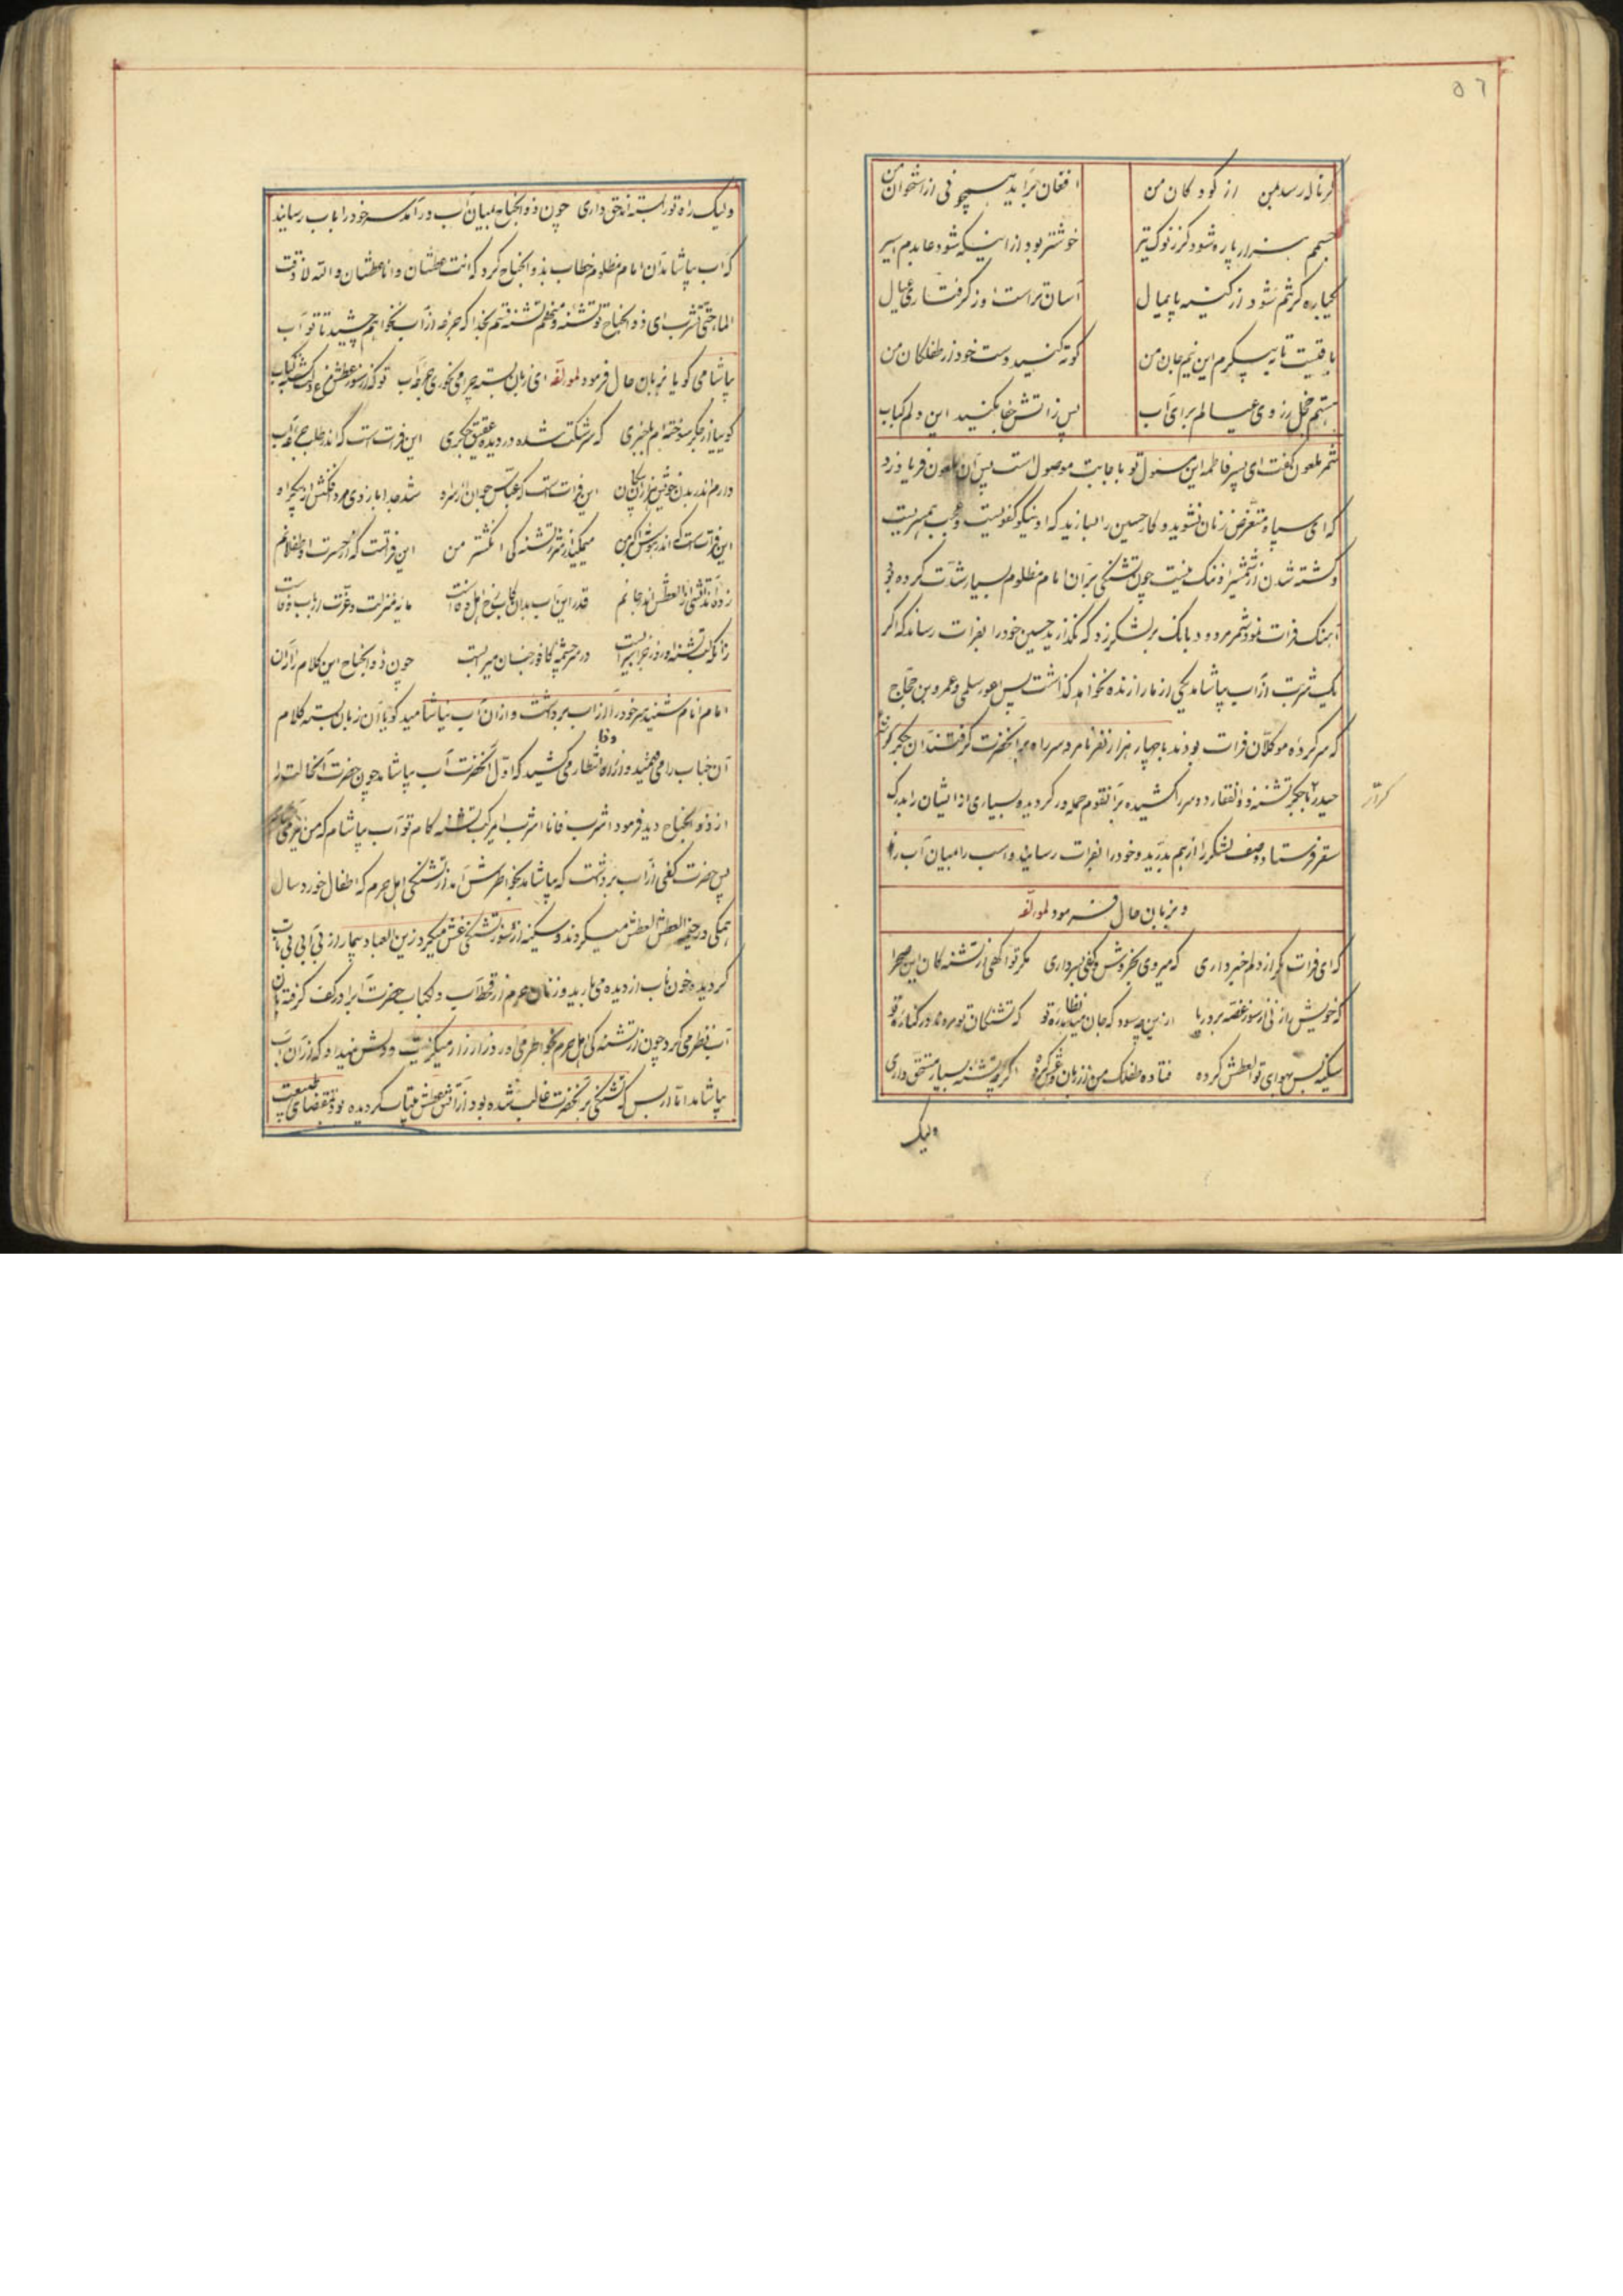 ٥٦
گر ناله رسد بمن از کودکان من افغان برآید همچو نی از استخوان من
جسمم هزار پاره شود گر ز نوک تیر خوشتر بود از اینکه شود عابدم اسیر
یکباره گر تنم شود از کینه پایمال آسان تر است از گرفتاری عیال
باقیست تا به پیکرم این نیم جان من کوته کنید دست خود از طفلکان من
هستم خجل ز روی عیالم برای آب پس ز آتش جفا بکنید این دلم کباب
شمر ملعون گفت ای پسر فاطمه این مسئول تو باجابت موصول است پس آن ملعون فریاد زد
که ای سپاه متعرض زنان نشوید و کار حسین را بسازید که او نیکو کفویست و
و کشته شدن از شمشیر او ننگ نیست چون تشنگی بر آن امام مظلوم بسیار شدت کرده بود
آهنک فرات نمود شمر مردود بانک بر لشکر زد که نگذارید حسین خود را بفرات رساند که اگر
یک شربت از آب بیاشامد یکی از ما را زنده نخواهد گذاشت پس اعور سلمی و عمرو بن حجاج
که سرکرده موکلان فرات بودند با چهار هزار نفر نامرد سر راه بر آنحضرت گرفتند آن جگر گوشه
حیدر با جگر تشنه ذوالفقار دو سر را کشیده بر آنقوم حمله ور گردیده بسیاری از ایشان را بدرک
کرار
سقر فرستاد و صف لشکر را از هم بدرید و خود را بفرات رسانید و اسب را میان آب راند
و بزبان حال فرمود لمؤلفه
که ای فرات مگر از دلم خبر داری که میروی بخروش و کفی بسر داری مگر تو آگهی از تشنه کان این صحرا
که خویش را زنی از سوز غصه بر دریا از این چه سود که جان میدهد براه تو که تشنگان تو مرده اند در کناره تو
سکینه بس بهوای تو العطش کرده فتاده طفلک من از زبان و غش کرده اگرچه تشنه بسیار مستحق داری
ولیک
ولیک راه تو را بسته اند حق داری چون ذوالجناح بمیان آب در آمد سر خود را بآب رسانید
که آب بیاشامد آن امام مظلوم خطاب بذوالجناح کرد که انت عطشان و انا عطشان و الله لا ذقت
الماء حتی تشرب ای ذوالجناح تو تشنه و من هم تشنه قسم بخدا که جرعه از آب نخواهم چشید تا تو آب
بیاشامی گویا بزبان حال فرمود لمؤلفه ای زبان بسته چرا می نخوری جرعه آب
گوییا از جگر سوخته ام بیخبری که سرشکت شده در دیده عقیق جگری این فرات است که اندر طلب جرعه آب
دارم اندر بدن خویش هزاران پیکان این فرات است که عباس جوان از سر راه شد جدا بازوی مردفکنش از
این فرات است که میمکید از اثر تشنه گی انگشتر من این فراتست که از حسرت او طفلانم
زده اند آتشی از العطش اندر جانم قدر این آب بدان کاب رخ اهل وفاست مایه منزلت و عزت ارباب وفاست
زانکه لب تشنه او روز جزا سیر است در سر چشمه کافور جنان میر است چون ذوالجناح این کلام را از آن
امام انام شنید سر خود را از آب برداشت و از آن آب نیاشامید گویا آن زبان بسته کلام
آن جناب را می فهمید و از راه وفا انتظار می کشید که اول آنحضرت آب بیاشامد چون حضرت آنحالت را
از ذوالجناح دید فرمود اشرب فانا اشرب ای مرکب تشنه کام تو آب بیاشام که من نیز می آشامم
پس حضرت کفی از آب برداشت که بیاشامد بخاطرش آمد از تشنگی اهل حرم که اطفال خورد سال
همگی در خیمه العطش العطش میکردند و سکینه از سوز تشنگی غش میکرد و زین العباد بیمار از بی آبی بی تاب
گردیده خون ناب از دیده می بارید و زنان حرم از قحط آب دل کباب حضرت آب را در کف گرفته بآن
آب نظر می کرد چون از تشنه گی اهل حرم بخاطر می آورد زار زار میگریست و دلش نمیداد که از آن آب
بیاشامد اما از بس که تشنگی بر آنحضرت غالب شده بود از آتش عطش بیتاب گردیده بود بمقتضای طبیعت